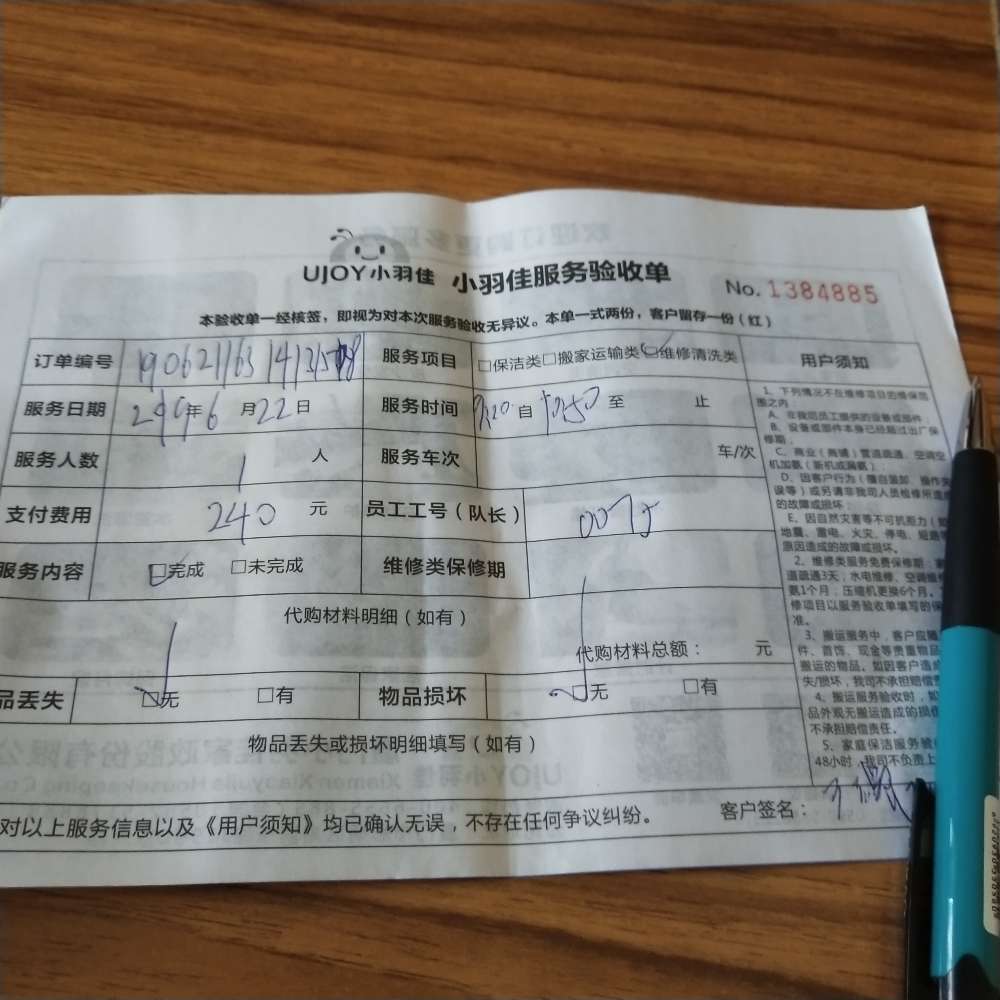 UJOY小羽佳 小羽佳服务验收单
No. 1384885
本验收单一经核签，即视为对本次服务验收无异议。本单一式两份，客户留存一份（红）
订单编号
服务项目 □保洁类□搬家运输类□维修清洗类
用户须知
服务日期 年6月22日
服务时间 自 至 止
服务人数 1 人
服务车次 车/次
支付费用 240 元
员工工号（队长）
服务内容 □完成 □未完成
维修类保修期
代购材料明细（如有）
代购材料总额： 元
品丢失 □无 □有
物品损坏 □无 □有
物品丢失或损坏明细填写（如有）
对以上服务信息以及《用户须知》均已确认无误，不存在任何争议纠纷。
客户签名：
1、下列情况不在维修项目的维保范
围之内：
A、非我司员工提供的设备或部件；
B、设备或部件本身已经超过出厂保
修期；
C、商业（商铺）管道疏通、空调空
机加氨（新机或漏氨）；
D、因客户行为（擅自装卸、操作失
误等）或另请非我司人员检修所造成
的故障或损坏；
E、因自然灾害等不可抗拒力（如
地震、雷电、火灾、停电、短路等
原因造成的故障或损坏。
2、维修类服务免费保修期：家
道疏通3天；水电维修、空调维修
氨1个月；压缩机更换6个月。
修项目以服务验收单填写的保
准。
3、搬运服务中，客户应随
件、首饰、现金等贵重物品
搬运的物品。如因客户造成
失/损坏，我司不承担赔偿责
4、搬运服务验收时，如
品外观无搬运造成的损伤
不承担赔偿责任。
5、家庭保洁服务验收
48小时，我司不负责上